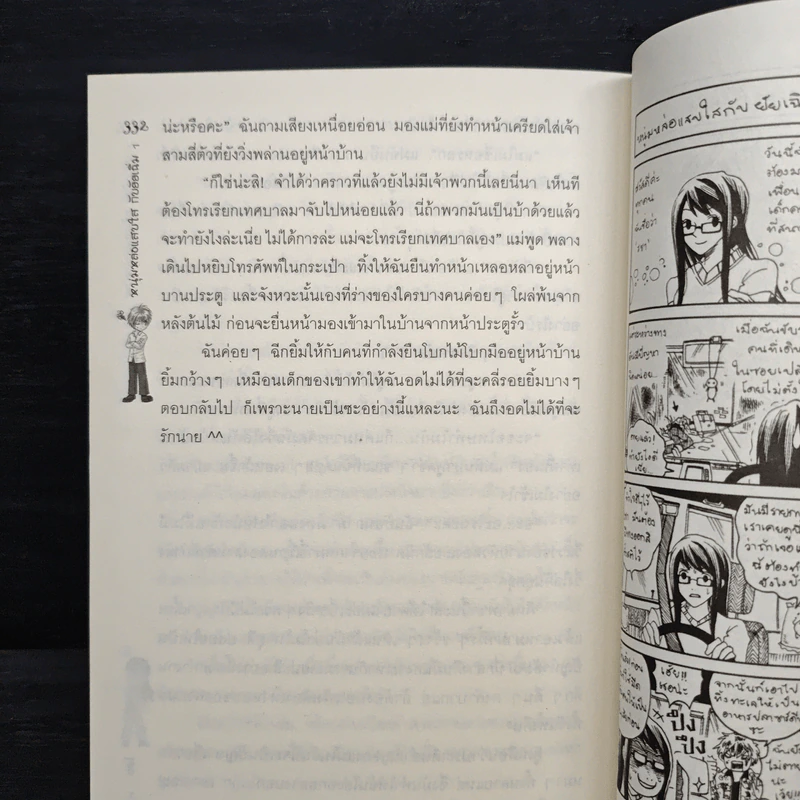 332
น่ะหรือคะ” ฉันถามเสียงเหนื่อยอ่อน มองแม่ที่ยังทำหน้าเครียดใส่เจ้า
สามสี่ตัวที่ยังวิ่งพล่านอยู่หน้าบ้าน
“ก็ใช่น่ะสิ! จำได้ว่าคราวที่แล้วยังไม่มีเจ้าพวกนี้เลยนี่นา เห็นที
ต้องโทรเรียกเทศบาลมาจับไปหน่อยแล้ว นี่ถ้าพวกมันเป็นบ้าด้วยแล้ว
จะทำยังไงล่ะเนี่ย ไม่ได้การล่ะ แม่จะโทรเรียกเทศบาลเอง” แม่พูด พลาง
เดินไปหยิบโทรศัพท์ในกระเป๋า ทิ้งให้ฉันยืนทำหน้าเหลอหลาอยู่หน้า
บานประตู และจังหวะนั้นเองที่ร่างของใครบางคนค่อยๆ โผล่พ้นจาก
หลังต้นไม้ ก่อนจะยื่นหน้ามองเข้ามาในบ้านจากหน้าประตูรั้ว
ฉันค่อยๆ ฉีกยิ้มให้กับคนที่กำลังยืนโบกไม้โบกมืออยู่หน้าบ้าน
ยิ้มกว้างๆ เหมือนเด็กของเขาทำให้ฉันอดไม่ได้ที่จะคลี่รอยยิ้มบางๆ
ตอบกลับไป ก็เพราะนายเป็นซะอย่างนี้แหละนะ ฉันถึงอดไม่ได้ที่จะ
รักนาย ^^
หนุ่มหล่อแสบใส กับยัยเฉิ่ม 1
หนุ่มหล่อแสบใสกับ ยัยเฉิ่
สวัสดีค่ะ
ทุกคน
วันนี้
ต้องมา
เพื่อน
เมื่อฉันขับ
คนที่เดิน
ในซอยเปลี่
โดยไม่ตั้ง
มันมีราย
เราเคยดู
ว่าถ้าเจอ
เฮ้ย!!
เธอน่ะ
ปึง
ปึง
จากนั้นก็เอาไป
ทิ้งทะเลให้เป็น
อาหารปลาซะ